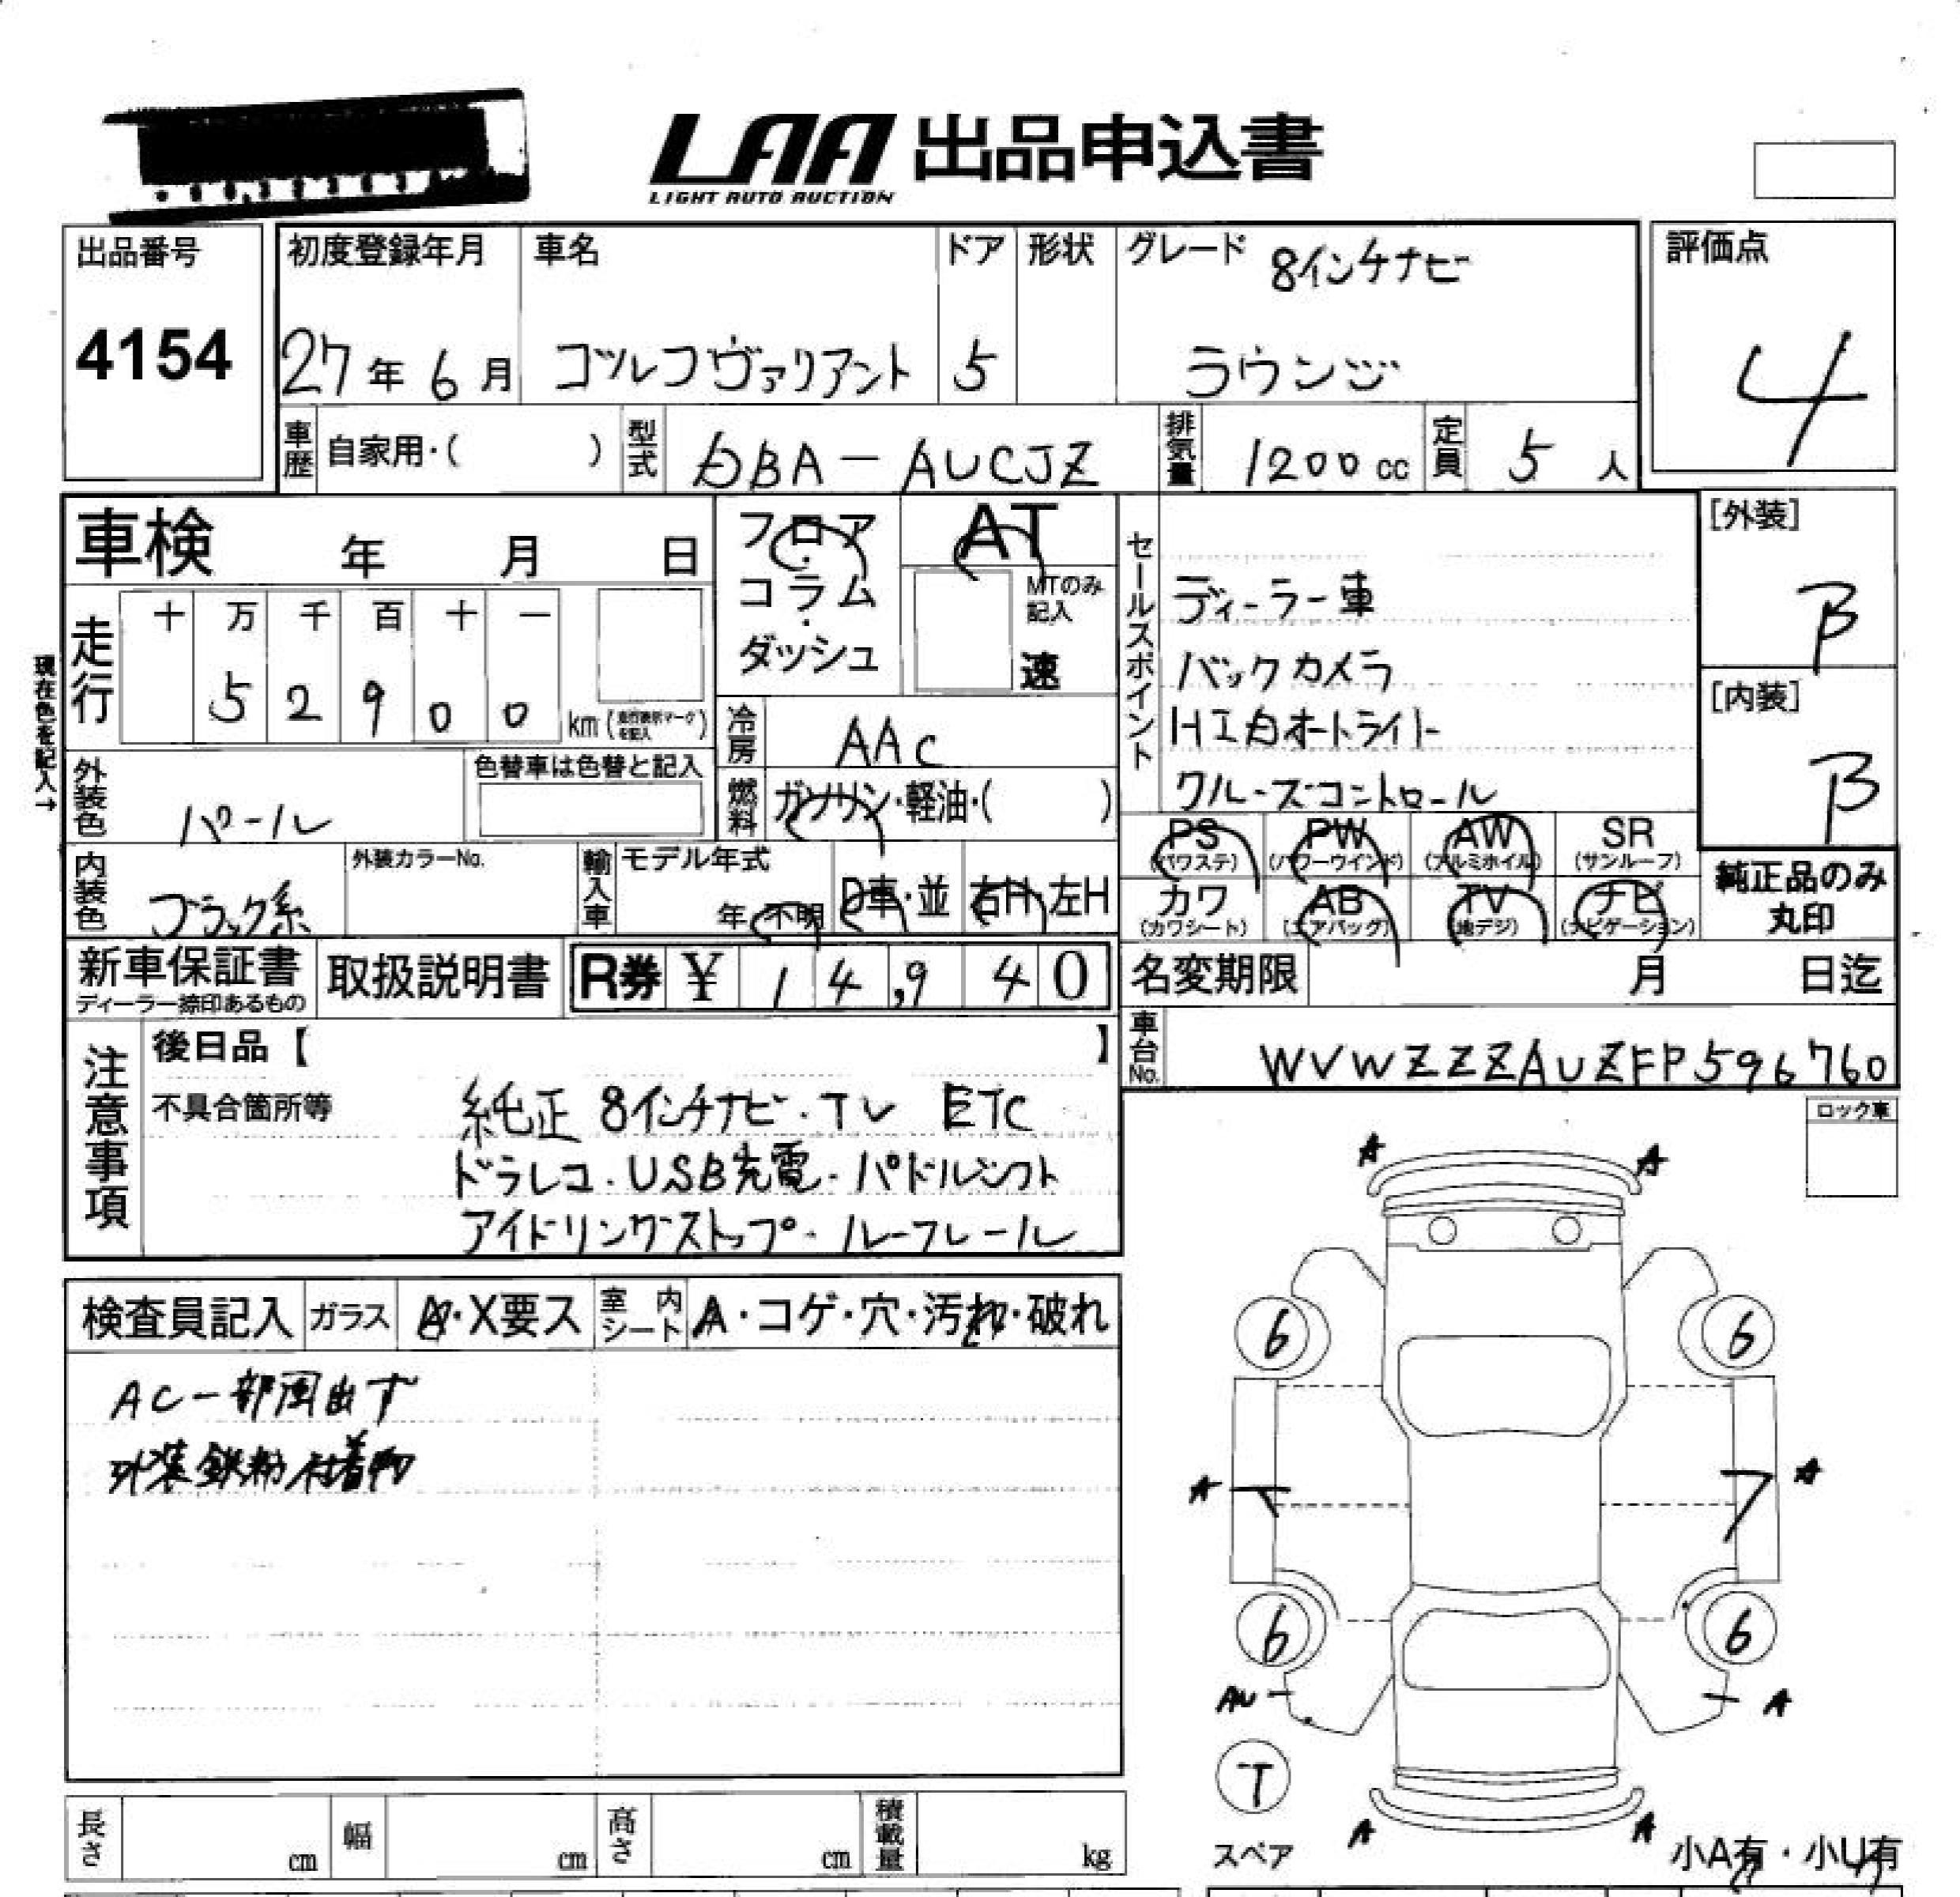 LAA 出品申込書
LIGHT AUTO AUCTION
出品番号
4154
初度登録年月
27年6月
車名
ゴルフヴァリアント
ドア
5
形状
グレード
8インチナビ
ラウンジ
評価点
4
車歴
自家用・( )
型式
DBA-AUCJZ
排気量
1200cc
定員
5人
車検 年 月 日
フロア・コラム・ダッシュ
AT
MTのみ記入
速
セールスポイント
ディーラー車
バックカメラ
HID オートライト
クルーズコントロール
[外装]
B
[内装]
B
現在色を記入→
走行
十 万 千 百 十 一
5 2 9 0 0
km (走行表示マークを記入)
冷房
AAC
外装色
パール
色替車は色替と記入
燃料
ガソリン・軽油・( )
PS (パワステ)
PW (パワーウインド)
AW (アルミホイル)
SR (サンルーフ)
カワ (カワシート)
AB (エアバッグ)
TV (地デジ)
ナビ (ナビゲーション)
純正品のみ丸印
内装色
ブラック系
外装カラーNo.
輸入車
モデル年式
年・不明
D車・並
右H・左H
新車保証書
ディーラー捺印あるもの
取扱説明書
R券 ¥ 14,940
名変期限 月 日迄
車台No.
WVWZZZAUZFP596760
注意事項
後日品【 】
不具合箇所等
純正 8インチナビ・TV ETC
ドラレコ・USB充電・パドルシフト
アイドリングストップ・ルーフレール
ロック車
検査員記入
ガラス
A・X要ス
室内シート
A・コゲ・穴・汚れ・破れ
AC一部風出ず
外装鉄粉付着有
A A
6 6
A A
6 6
AU A
T
スペア
A A
小A有・小U有
長さ cm
幅 cm
高さ cm
積載量 kg